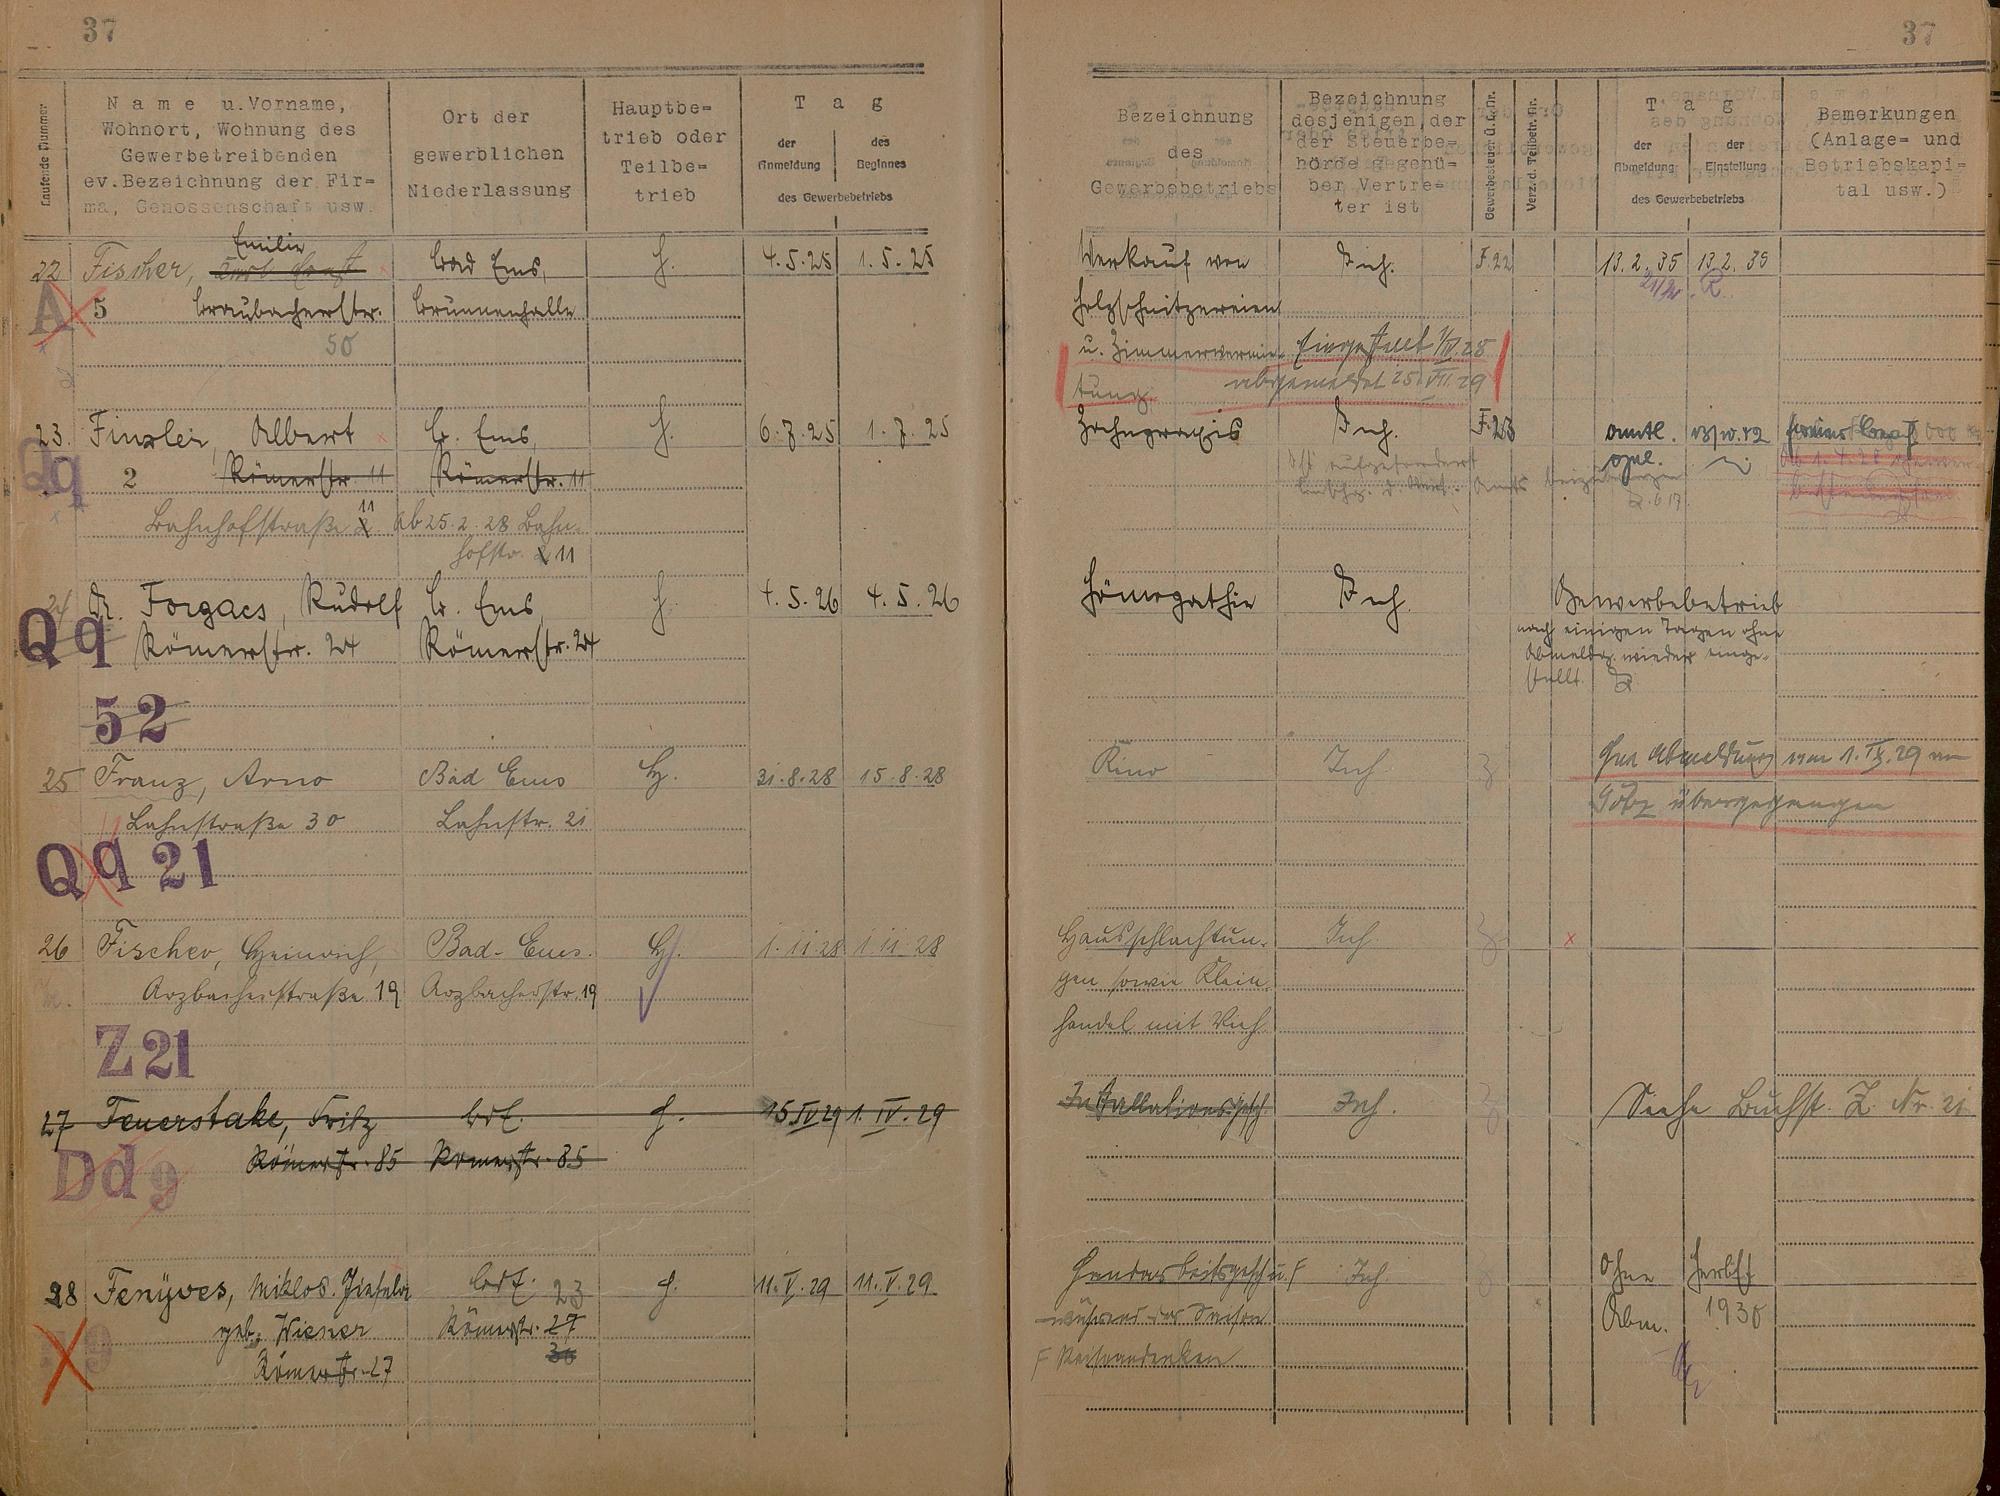 37
Laufende Nummer
Name u. Vorname,
Wohnort, Wohnung des
Gewerbetreibenden
ev. Bezeichnung der Fir=
ma, Genossenschaft usw.
Ort der
gewerblichen
Niederlassung
Hauptbe=
trieb oder
Teilbe=
trieb
Tag
der
Anmeldung
des
Beginnes
des Gewerbebetriebs
22 Fischer, Emilie Bad Ems, H. 4.5.25 1.5.25
A 5 Braubacherstr. Brunnenhalle
50
23. Finzler, Albert B. Ems, H. 6.7.25 1.7.25
Qq 2 Römerstr. 11 Römerstr. 11
Bahnhofstraße 11 Ab 25.2.28 Bahn-
hofstr. 11
24 Dr. Forgacs, Rudolf B. Ems, H. 4.5.26 4.5.26
Qq Römerstr. 24 Römerstr. 24
52
25 Franz, Arno Bad Ems H. 31.8.28 15.8.28
Lahnstraße 30 Lahnstr. 21
Qq 21
26 Fischer, Heinrich, Bad-Ems. H. 1.11.28 1.11.28
Arzbacherstraße 19 Arzbacherstr. 19
Z 21
27 Feuerstake, Fritz H. 15 IV 29 1. IV. 29
Dd 9 Römerstr. 85 Römerstr. 85
28 Fenÿves, Miklos. H. 11. V. 29 11. V. 29
23
geb. Wiener Römerstr. 27
9 Römerstr. 27 36
37
Bezeichnung
des
Gewerbebetriebs
Bezeichnung
desjenigen, der
der Steuerbe=
hörde gegenü=
ber Vertre=
ter ist
Gewerbesteuer d. L. Nr.
Verz. d. Teilbetr. Nr.
Tag
der
Abmeldung
der
Einstellung
des Gewerbebetriebs
Bemerkungen
(Anlage= und
Betriebskapi=
tal usw.)
Verkauf von Inh. F.22 13.2.35 13.2.35
Holzschnitzereien
u. Zimmervermie- Eingestellt
tung. abgemeldet 25. VII. 29
Zahnpraxis Inh. F.23 amtl.
Homöopathie Inh. Gewerbebetrieb
nach einigen Tagen ohne
Abmeldg. wieder einge-
stellt.
Kino Inh. Abmeldung vom 1. IX. 29 an
Götz übergegangen
Hausschlachtun- Inh. x
gen sowie Klein-
handel mit Vieh
Installationsgesch. Inh. Siehe Buchst. Z. Nr. 21
Handarbeitsgesch. u. F Inh. Ohne Herbst
während der Saison Abm. 1930
F Reiseandenken